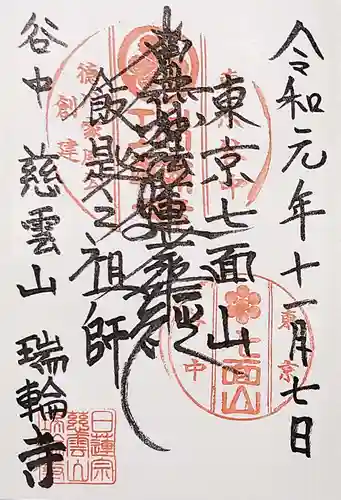 令和元年十一月七日
東京七面山
南無妙法蓮華経
飯匙之祖師
谷中 慈雲山 瑞輪寺
德川家康公
創建
東京
七面山
谷中
日蓮宗
慈雲山
瑞輪寺